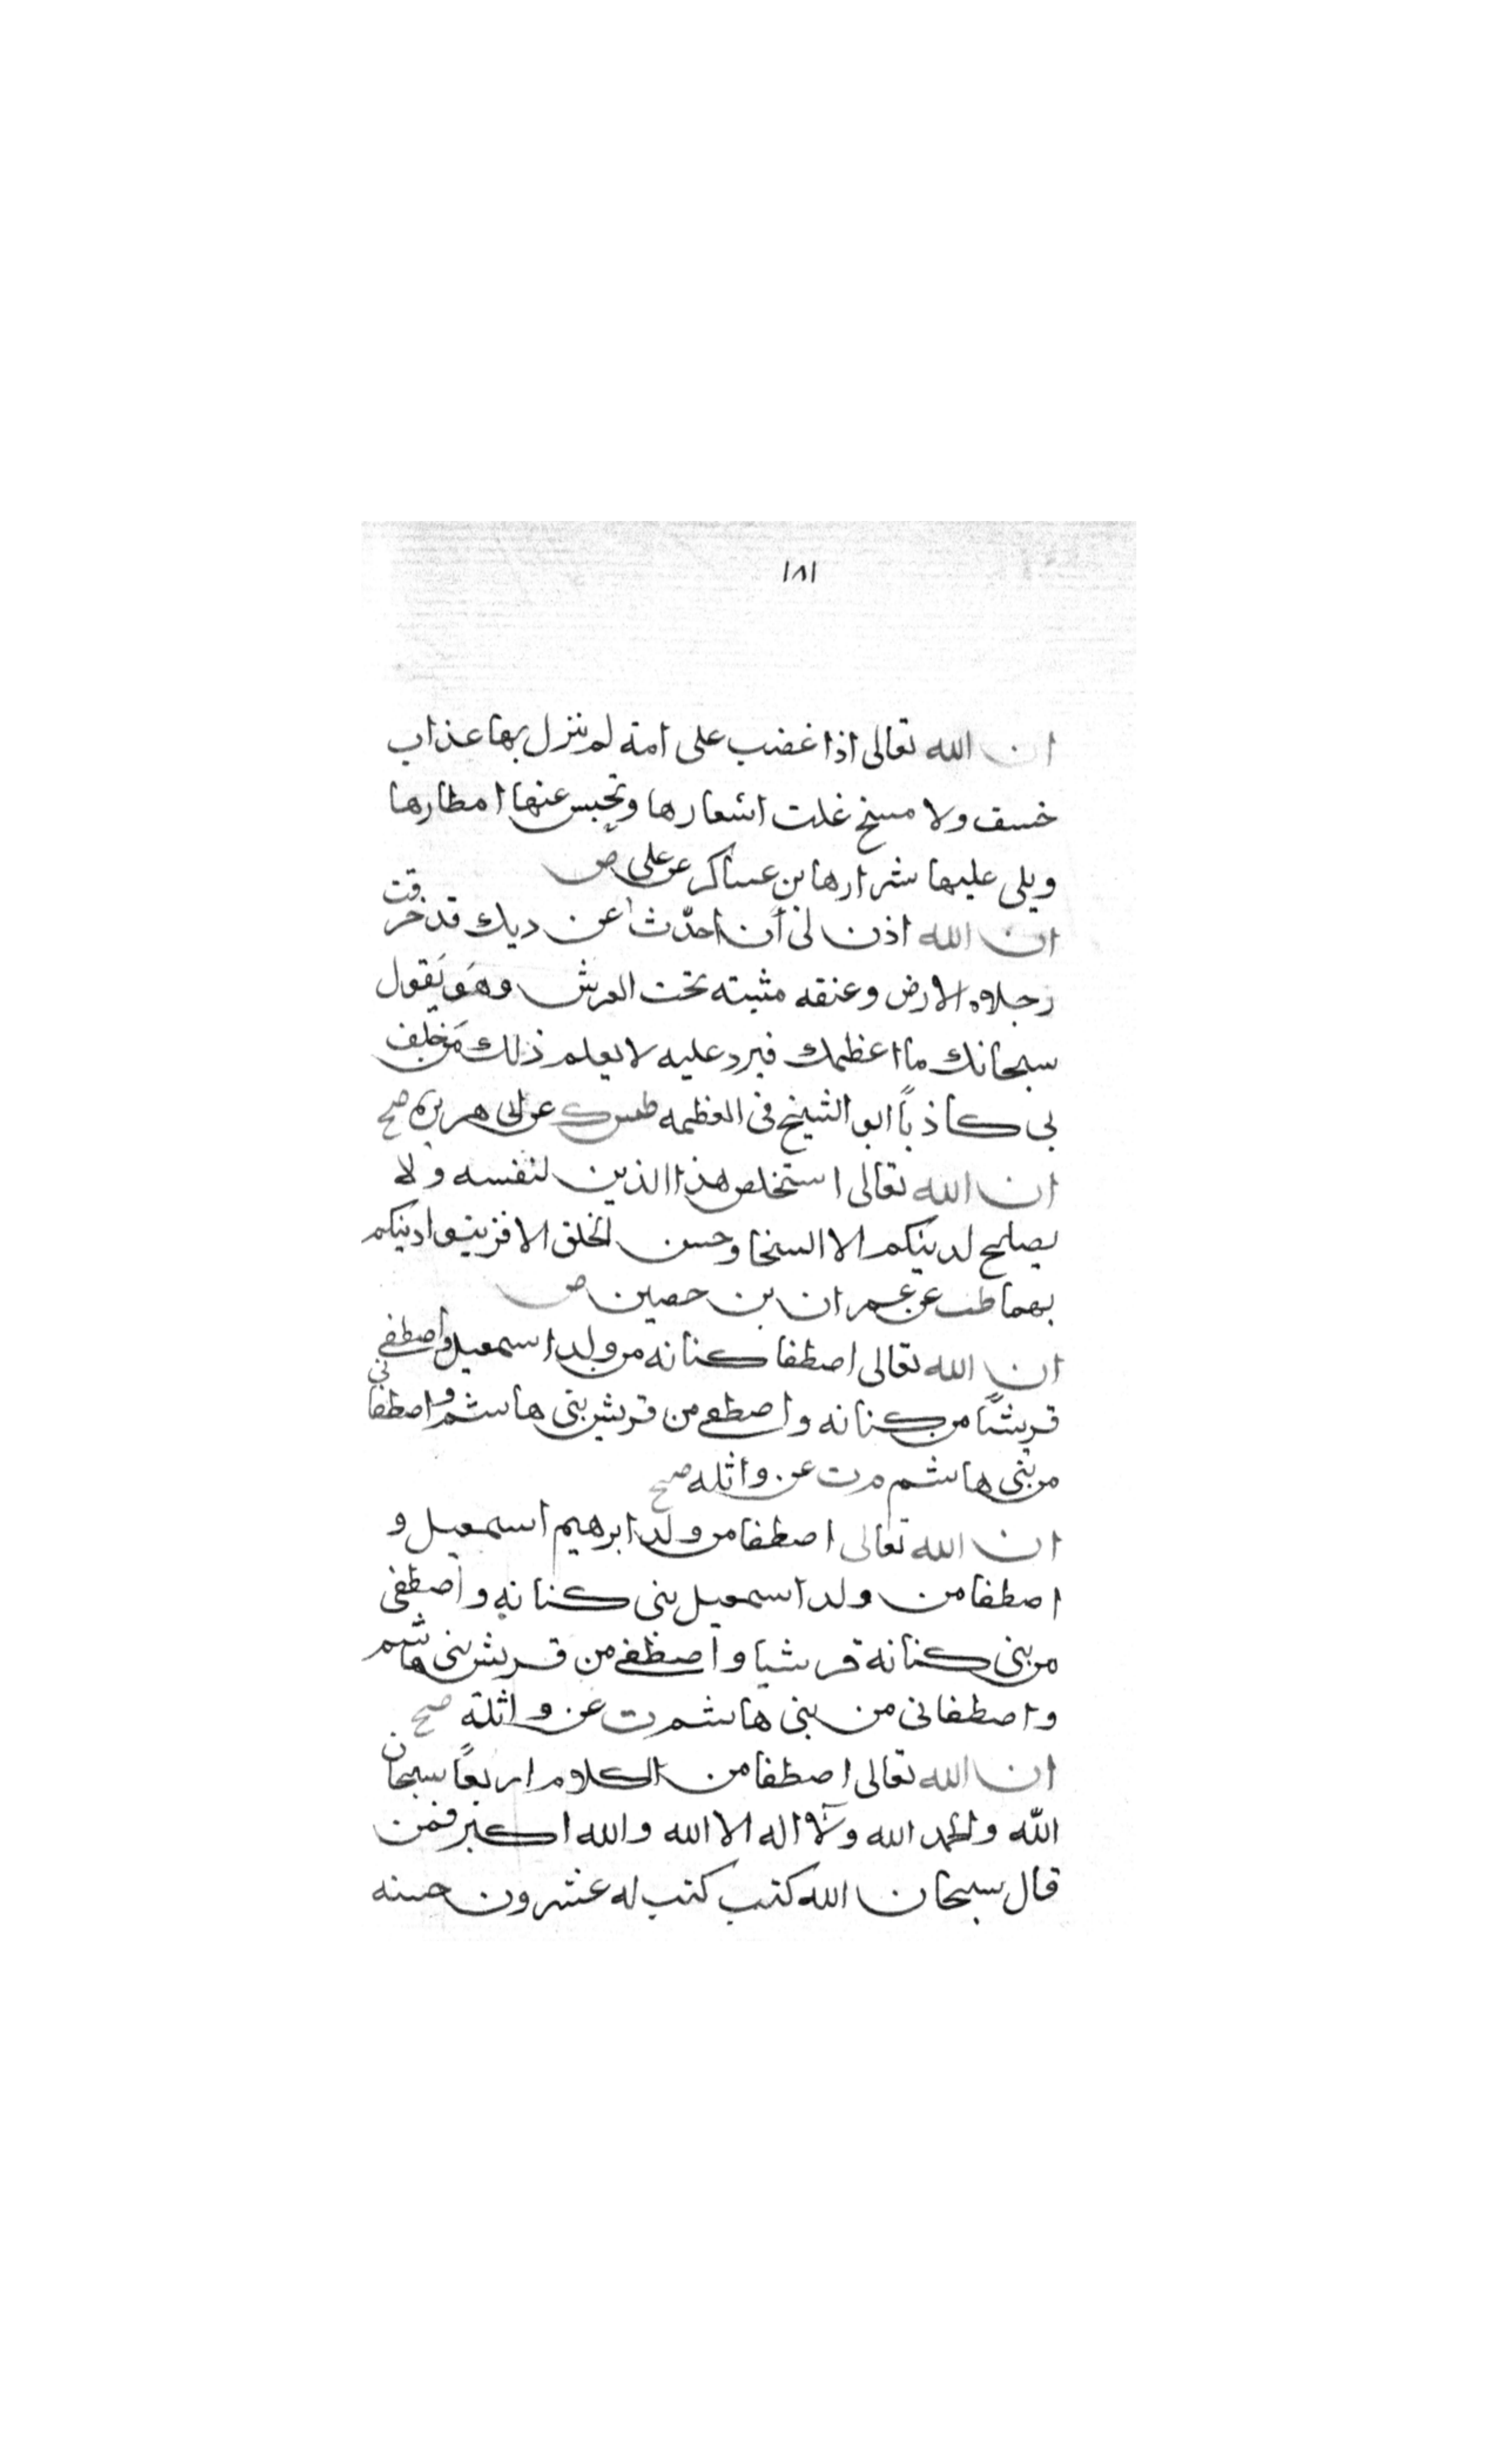 ١٨١
ان الله تعالى اذا غضب على امة لم ينزل بها عذاب
خسف ولا مسخ غلت اسعارها وتحبس عنها امطارها
ويلى عليها شرارها بن عساكر عن على ض
ان الله اذن لى أن احدّث عن ديك قد خرقت
رجلاه الارض وعنقه مثبته تحت العرش وهو يقول
سبحانك ما اعظمك فيرد عليه لا يعلم ذلك من خلف
بى كاذباً ابو الشيخ فى العظمه طس ك عن ابى هريرة صح
ان الله تعالى استخلص هذا الدين لنفسه ولا
يصلح لدينكم الا السخا وحسن الخلق الا فزينوا دينكم
بهما طب عن عمران بن حصين ض
ان الله تعالى اصطفا كنانه من ولد اسمعيل واصطفى
قريشًا من كنانه واصطفى من قريش بنى هاشم واصطفانى
من بنى هاشم م ت عن واثله صح
ان الله تعالى اصطفا من ولد ابرهيم اسمعيل و
اصطفا من ولد اسمعيل بنى كنانه واصطفى
من بنى كنانة قريشيا واصطفى من قريش بنى هاشم
واصطفانى من بنى هاشم ت عن واثلة صح
ان الله تعالى اصطفا من الكلام اربعاً سبحان
الله والحمد الله ولا اله الا الله والله اكبر فمن
قال سبحان الله كتب كتب له عشرون حسنه